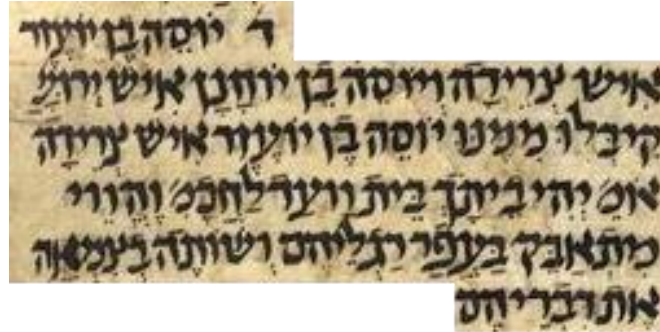 ד יוסה בן יועזר
איש צרידה ויוסה בן יוחנן איש ירוש
קיבלו ממנו יוסה בן יועזר איש צרידה
אומ׳ יהי ביתך בית ווعד לחכמ׳ והווי
מיתאבק בעפר רגליהם ושותה בצמאה
את דבריהם